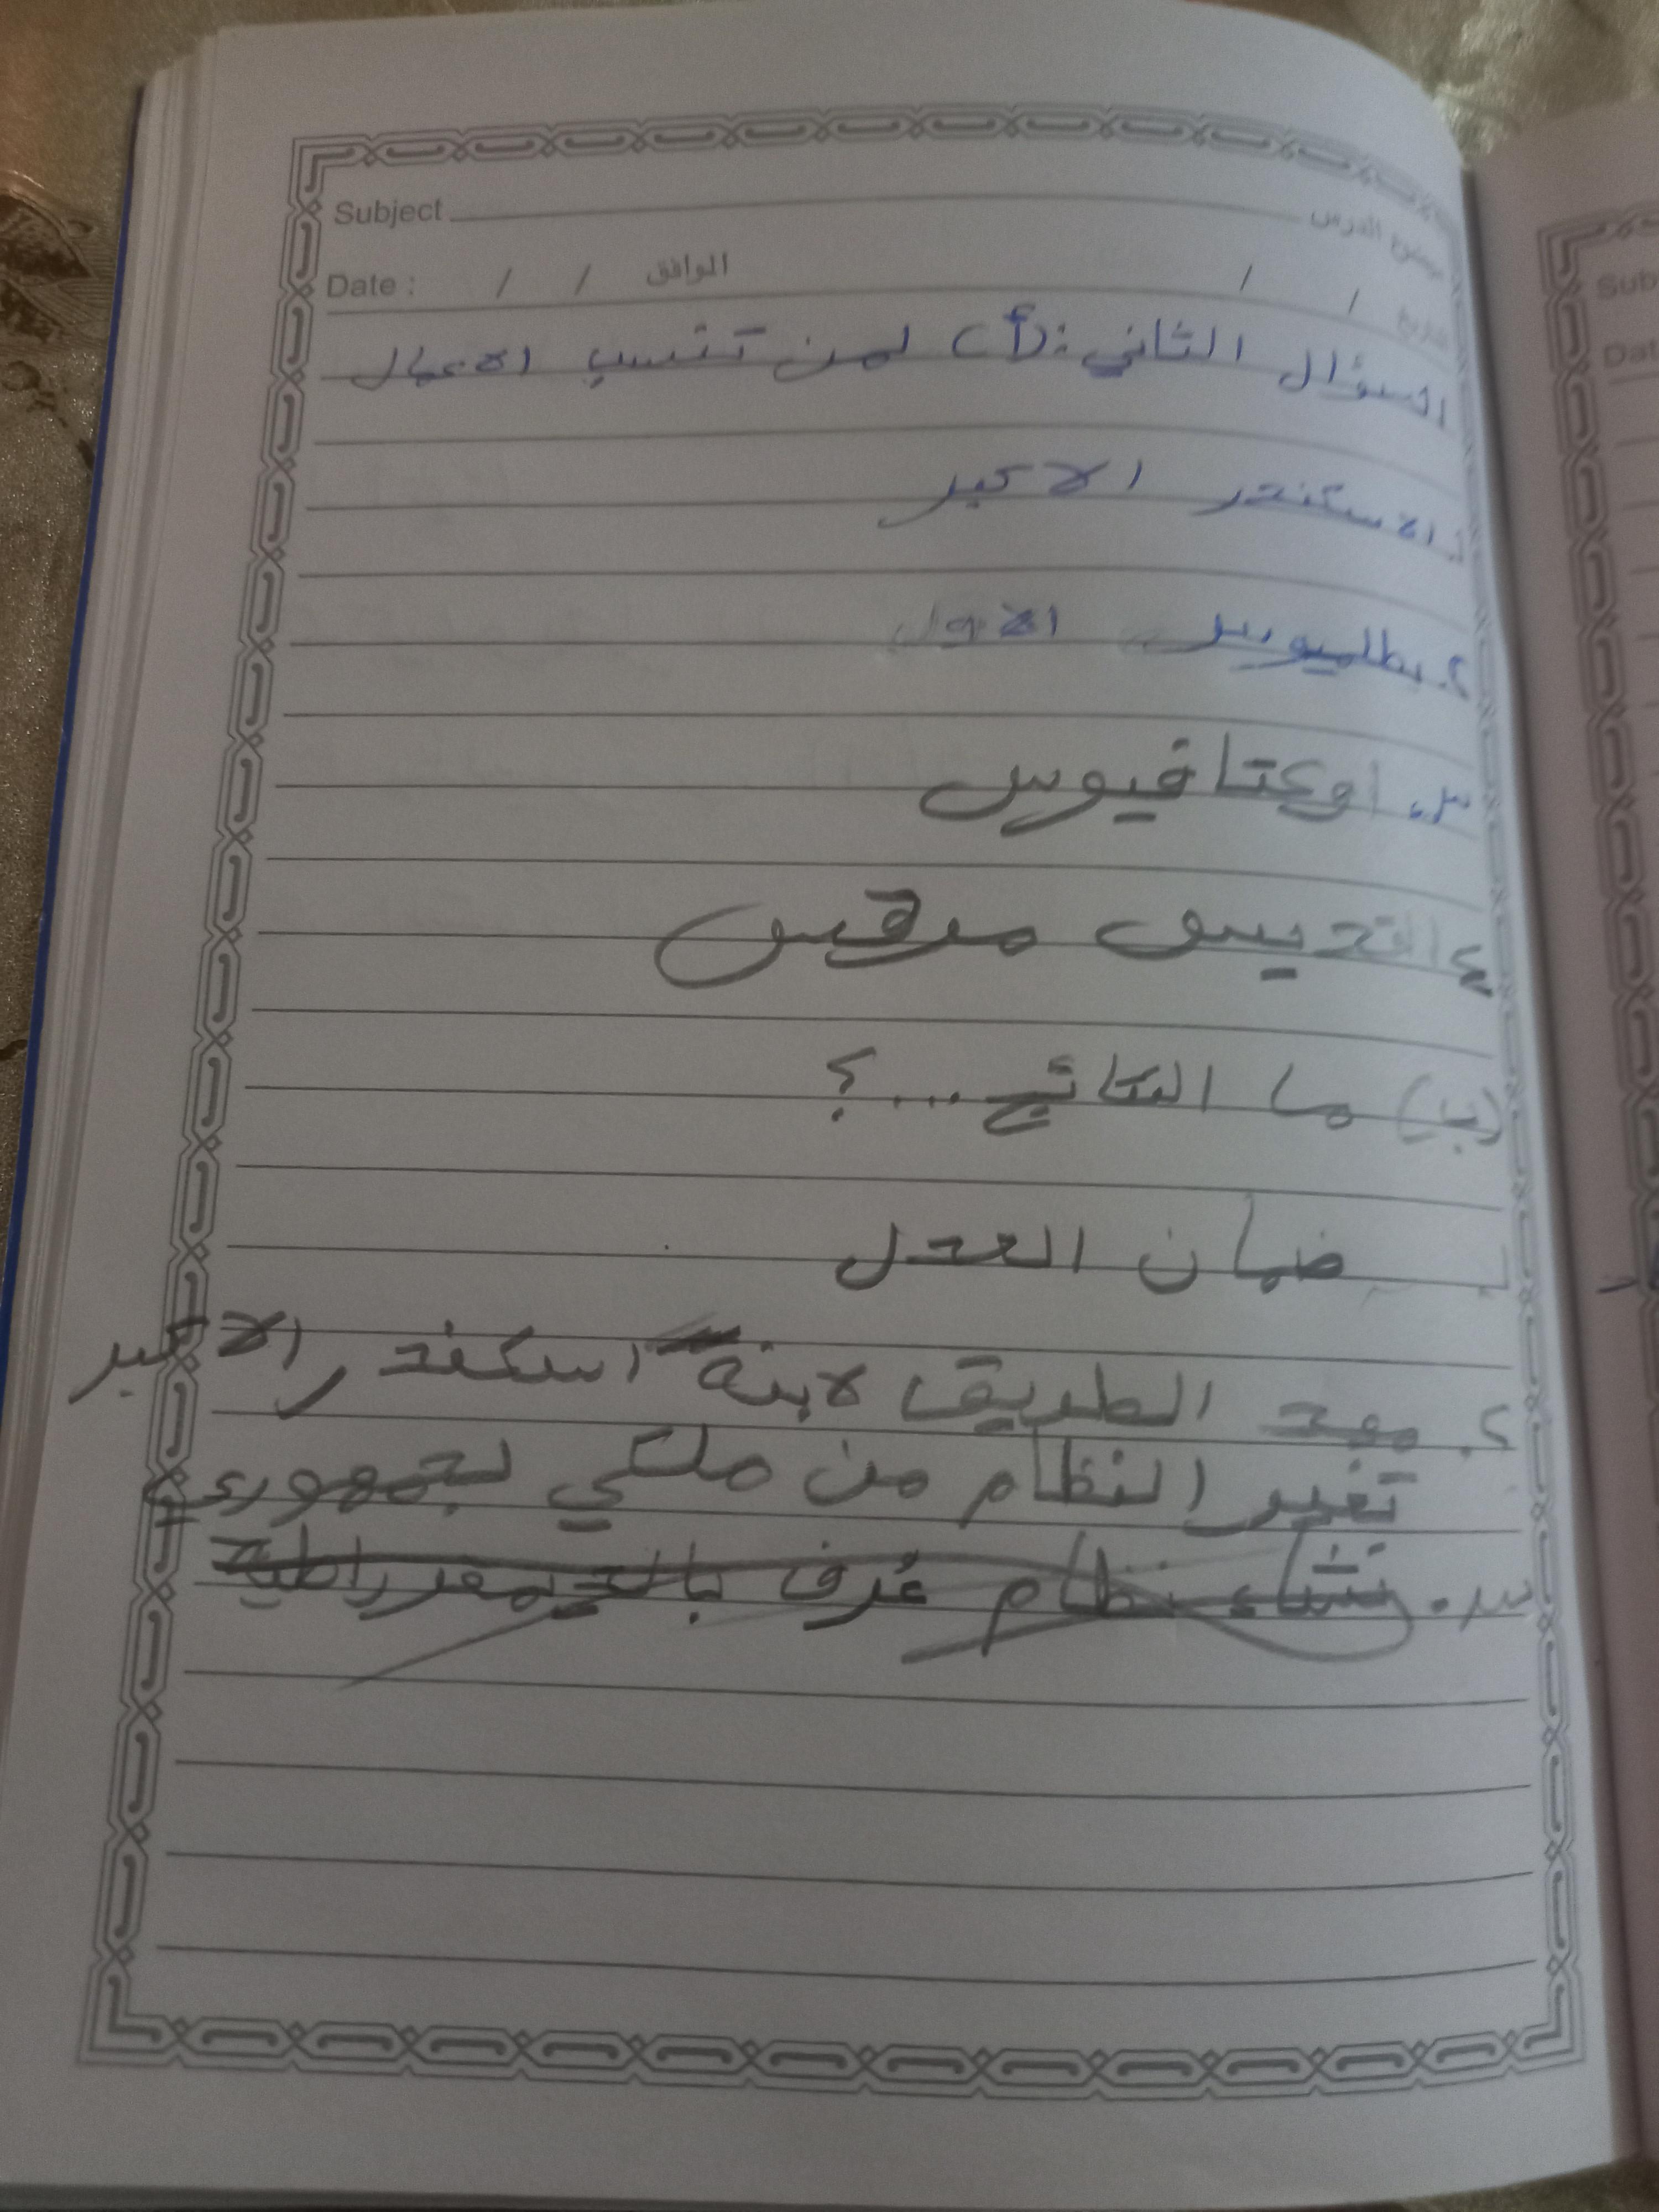 Subject موضوع الدرس
Date : / / الموافق / / التاريخ
السؤال الثاني: (أ) لمن تنسب الاعمال
1. الاسكندر الاكبر
٢. بطليموس الاول
٣. اوكتافيوس
٤ القديس مرقس
(ب) ما النتائج ...؟
ضمان العدل
٢. مهد الطريق لابنه اسكندر الاكبر
تغير النظام من ملكي لجمهوري
٣. نشاء نظام عُرف بالديمقراطية